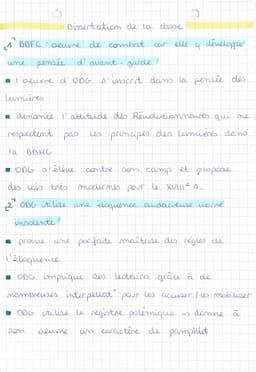 Dissertation de la classe
1° DDFC : oeuvre de combat car elle y développe
une pensée d'avant-garde !
▪ l'oeuvre d'ODG s'inscrit dans la pensée des
Lumières
▪ dénonce l'attitude des Révolutionnaires qui ne
respectent pas les principes des lumières dans
la DDHC
▪ ODG s'élève contre son camp et propose
des lois très modernes pour le XVIII° s.
2° ODG utilise une éloquence audacieuse voire
insolente !
▪ prouve une parfaite maîtrise des règles de
l'éloquence
▪ ODG implique ses lecteurs grâce à de
nombreuses interpellat° pour les accuser / les mobiliser
▪ ODG utilise le registre polémique → donne à
son oeuvre un caractère de pamphlet